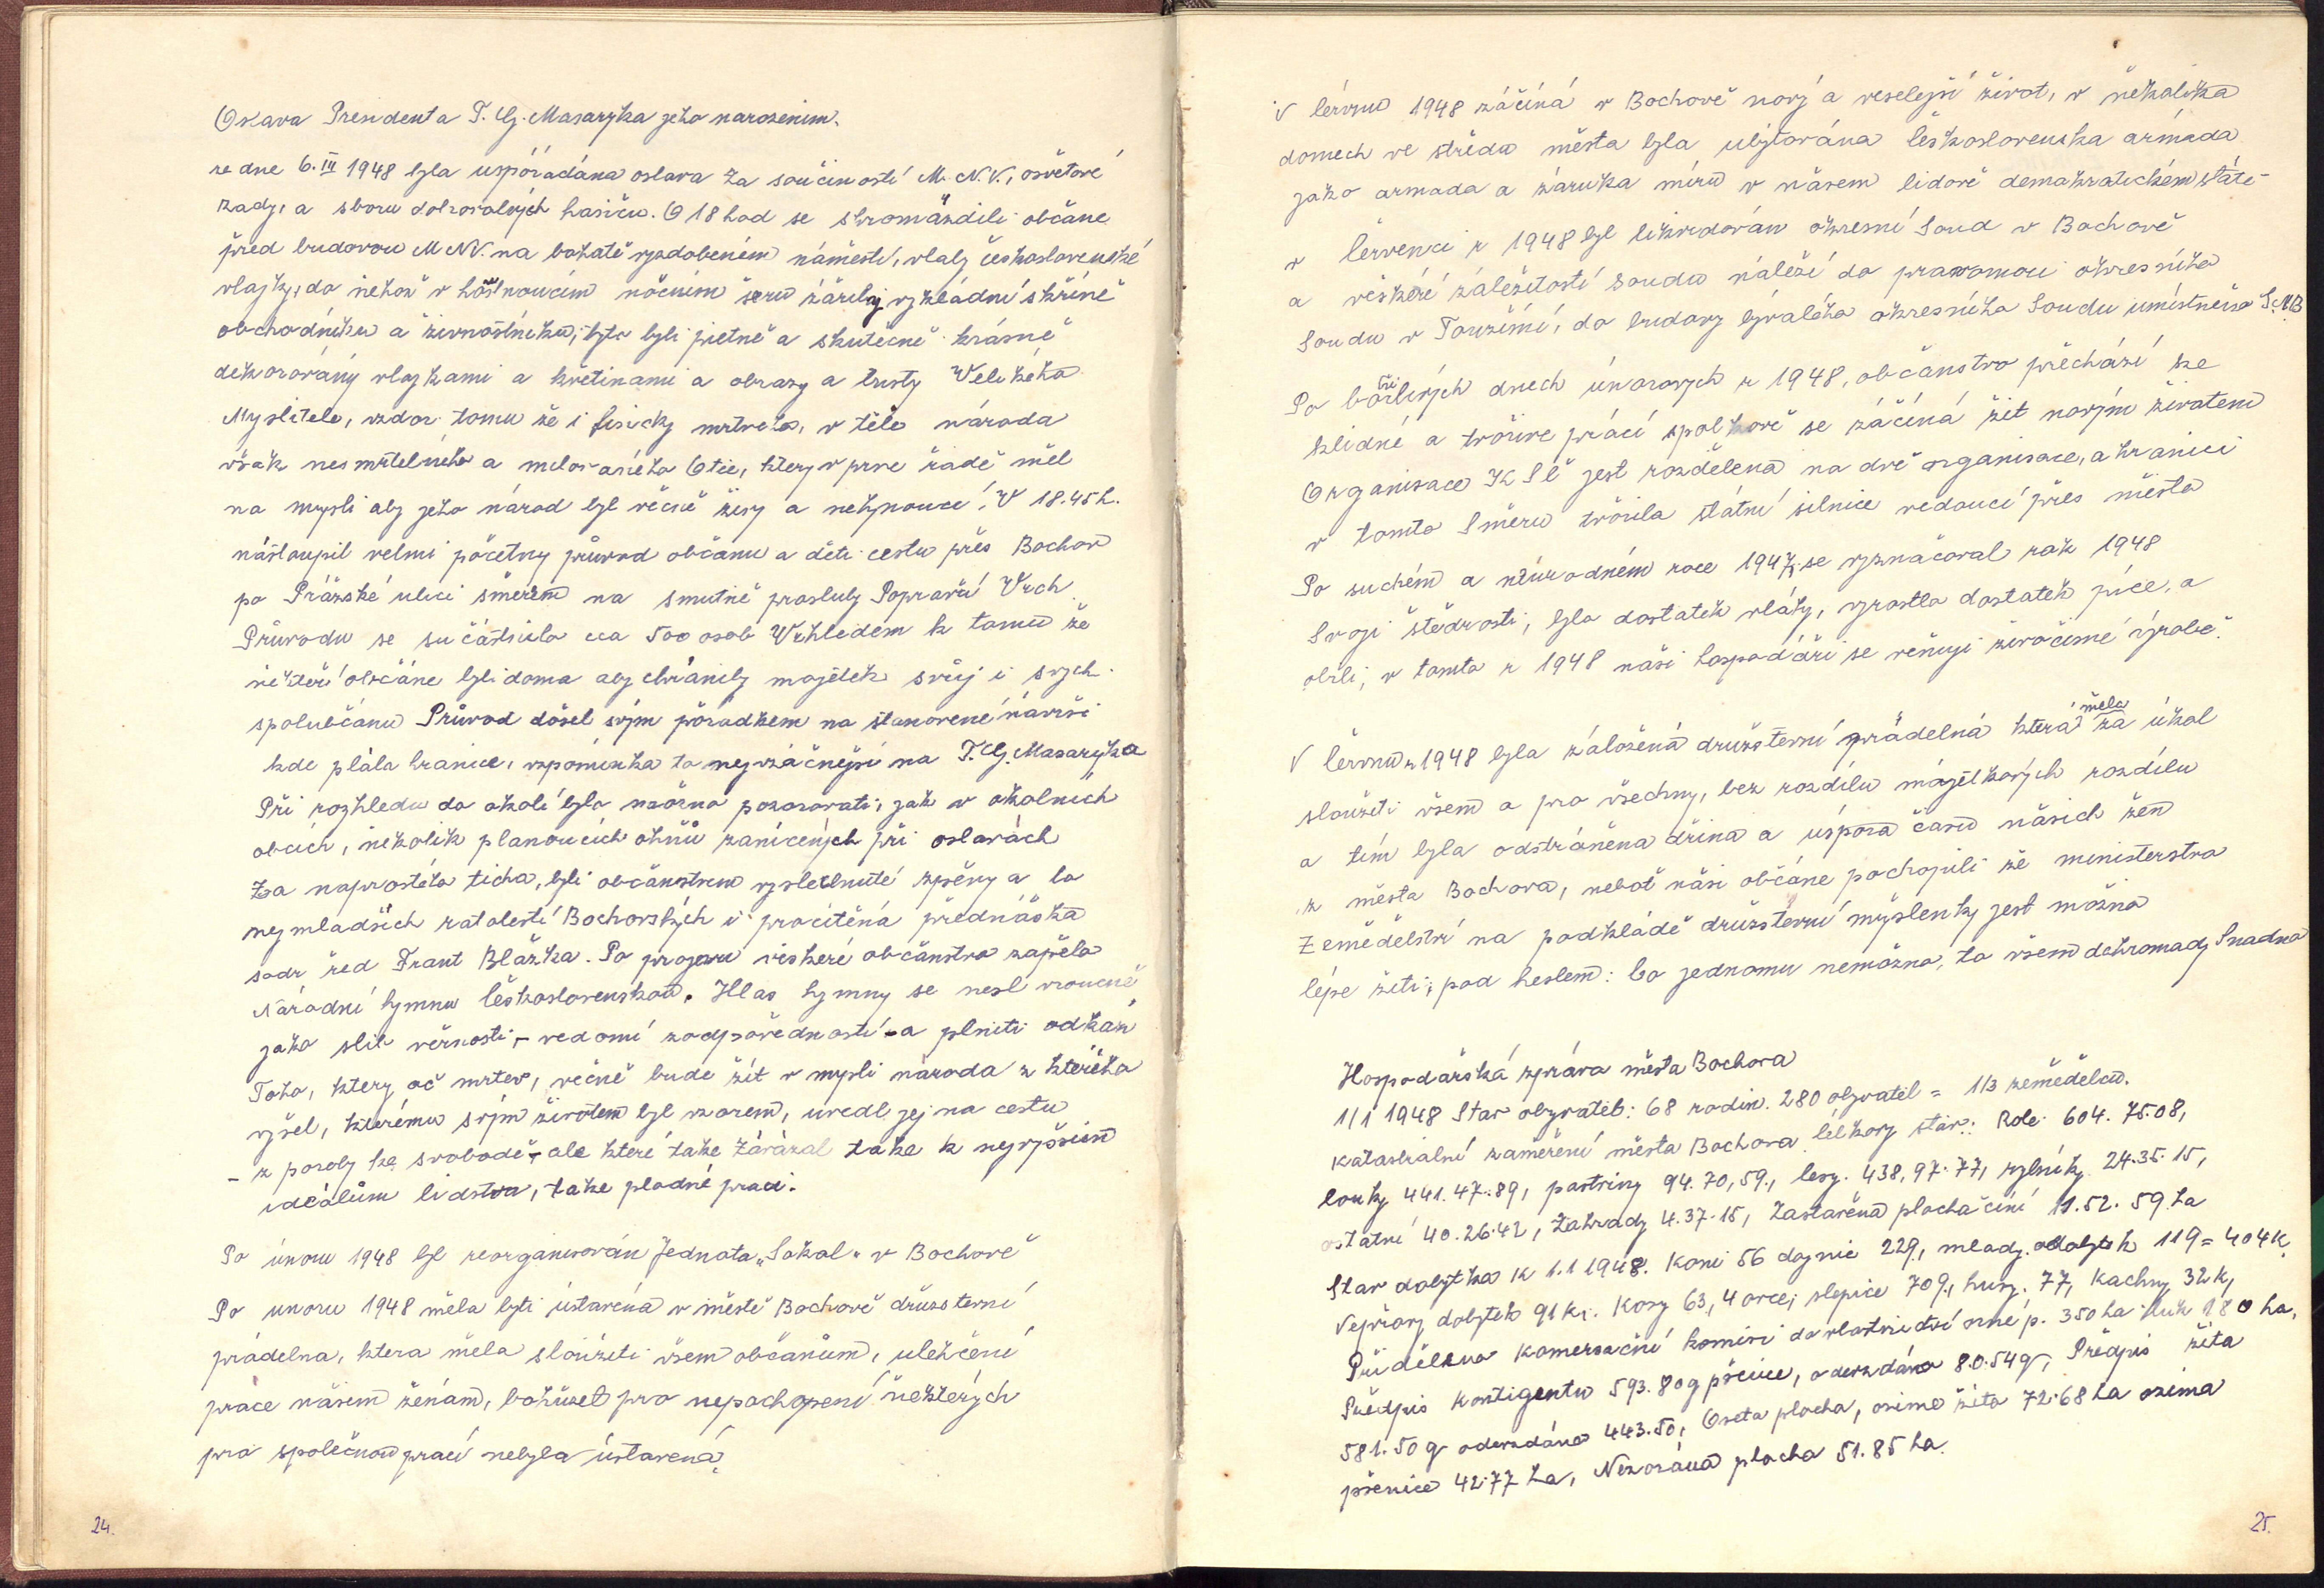 Oslava Presidenta T. G. Masaryka jeho narozenim.
ve dne 6. III 1948 byla uspořádána oslava za součinosti M. N. V., osvětové
rady, a sboru dobrovolných hasičů. O 18 hod se shromáždili občane
před budovou M NV. na bohatě vyzdobeném náměstí, vlaly československé
vlajky, do něhož v houstnoucím nočním šeru zářily vykládní skříně
obchodníku a živnostníku, byli pietně a skutečně krásně
dekorovány vlajkami a květinami a obrazy a busty Velikého
Myslitele, vzdor tomu že i fisicky mrtvého, v těle národa
však nesmrtelného a milovaného Otce, ktery v prve řadě měl
na mysli aby jeho národ byl věčně živy a nehynouce! V 18.45 h.
nástoupil velmi počelny průvod občanu a děti cestu přes Bochov
po Prážské ulici směrem na smutně prosluly Popravčí Vrch.
Průvodu se sučástnilo cca 500 osob Vzhledem k tomu že
někteří občáne byli doma aby chránily majetek svůj i svych
spolubčánu Průvod došel svým pořadkem na stanovené návrší
kde plála hranice, vzpominka ta nejvzáčnější na T. G. Masaryka
Při rozhledu do okolí bylo možno pozorovati, jak v okolních
obcích, několik planoucích ohňů zanícených při oslavách
Za naprostého ticha, byli občanstvem vyslechnuté zpěvy a to
nejmladších ratolestí Bochovských i procitěná přednáška
sodr řed Frant Blažka. Po projevu veškeré občanstvo zapělo
Národní hymnu československou. Hlas hymny se nesl vroucně
jako slib věrnosti, – vedomí zodpovědnosti – a plniti odkaz
Toho, ktery ač mrtev, věčně bude žít v mysli národa z kteréko
vyšel, kterému svým životem byl vzorem, uvedl jej na cestu
– z poroby ke svobodě – ale které take zárázal take k nejvyšším
ideálům lidstva, take plodné praci.
Po únoru 1948 byl reorganisován Jednota „Sokol" v Bochově
Po unoru 1948 měla byti ústavena v městě Bochově družsterní
prádelna, ktera měla sloužiti všem občanům, ulehčení
práce našem ženám, bohužel pro nepochopení některých
pro společnou prací nebyla ústavená.
24.
V červnu 1948 záčíná v Bochově nový a veselejší život, v někalika
domech ve středu města byla ubytována československa armáda
jako armada a záruka míru v násem lidově demokratickém státe –
v červenci r 1948 byl likvidován okresní Soud v Bochově
a veškéré záležitostí soudu náleží do prawomoci okresního
Soudu v Toužimi, do budovy byválého okresního Soudu umístněno S.N.B
Po bouřlivých dnech únorovych r 1948, občanstvo přechází ke
klidné a tvořive práci spolkově se záčíná žit novým životem
Organisace KSČ jest rozdělena na dvě organisace, a hranici
v tomto Směru tvořila státní silnice vedoucí přes město
Po suchém a neúrodném roce 1947, se vyznačoval rok 1948
Svoji štědrosti, bylo dostatek vláhy, vyrostlo dostatek píce, a
obilí, v tomto r 1948 náši hospodáři se věnuji živočišné výrobě.
V červnu r 1948 byla záložená družsterní prádelná která měla za úkol
sloužiti všem a pro všechny, bez rozdílu májetkových rozdílu
a tím byla odstráněna dřina a úspora času nášich žen
z města Bochova, nebot náši občáne pochopili že ministerstva
Zemědělství na podkládě družsterní mýšlenky jest možno
lépe žiti, pod heslem: Co jednomu nemožno, to všem dohromady Snadno
Hospodářská zpráva města Bochova
1/1 1948 Stav obyvatel: 68 rodin. 280 obyvatel = 1/3 zemědělců.
Katastralní zaměření města Bochova Célkovy stav: Role 604. 75.08,
louky 441.47.89, pastviny 94. 70, 59., lesy. 438, 97.77, rybníky 24.35.15,
ostatní 40.26.42, Zahrady 4.37.15, Zastavěna plocha čini 11.52.59 ha
Stav dobytka k 1.1 1948. Koni 56 dojnic 229, mlady. dobytek 119 = 404 k,
Vepřovy dobytek 91 k,. Kozy 63, 4 ovce, slepice 709, husy. 77, Kachny 32 k,
Přiděleno komersační komisi do vlastnictví orné p. 350 ha luk 180 ha,
Předpis kontigentu 593.80 q pšenice, oderzdáno 8.0.54 q, Předpis žita
581.50 q oderzdáno 443.50, Oseta plocha, ozimo žito 72.68 ha ozima
pšenice 42.77 ha, Nezoráná plocha 51.85 ha.
25.